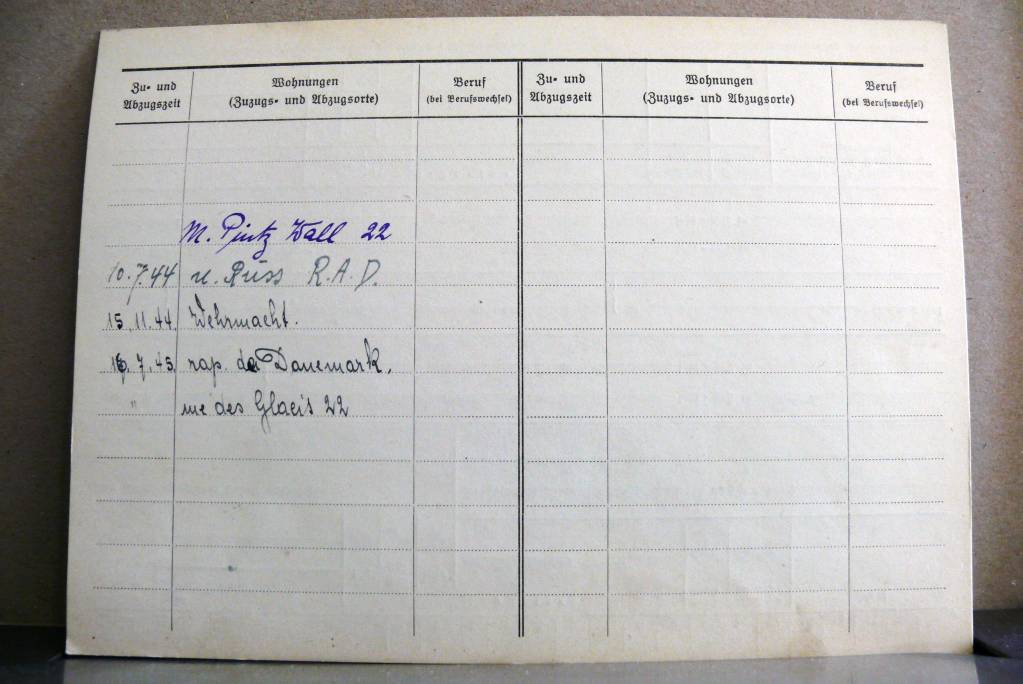 Zu- und Abzugszeit
Wohnungen
(Zuzugs- und Abzugsorte)
Beruf
(bei Berufswechsel)
Zu- und Abzugszeit
Wohnungen
(Zuzugs- und Abzugsorte)
Beruf
(bei Berufswechsel)
M. Pintz Wall 22
10.7.44 n. Russ R.A.D.
15.11.44. Wehrmacht.
16.7.45. rap. de Danemark.
" rue des Glacis 22